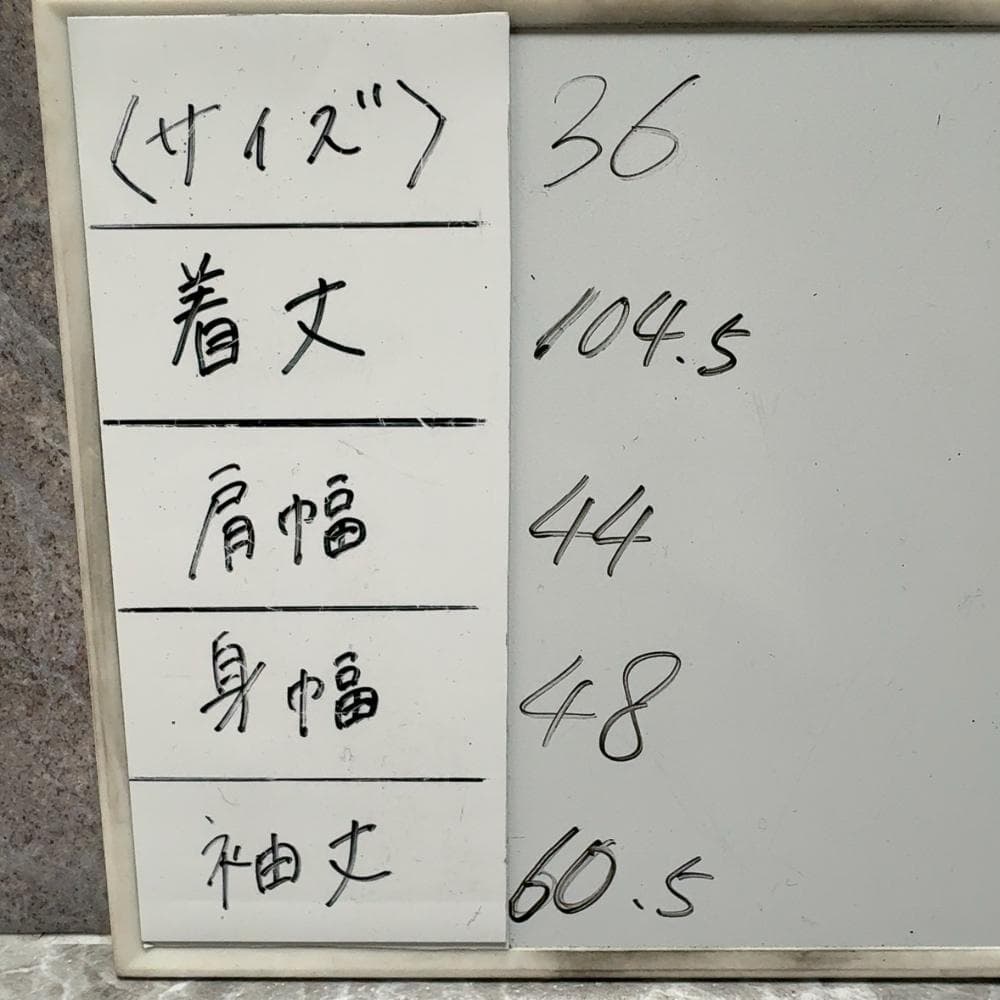 〈サイズ〉 36
着丈 104.5
肩幅 44
身幅 48
袖丈 60.5